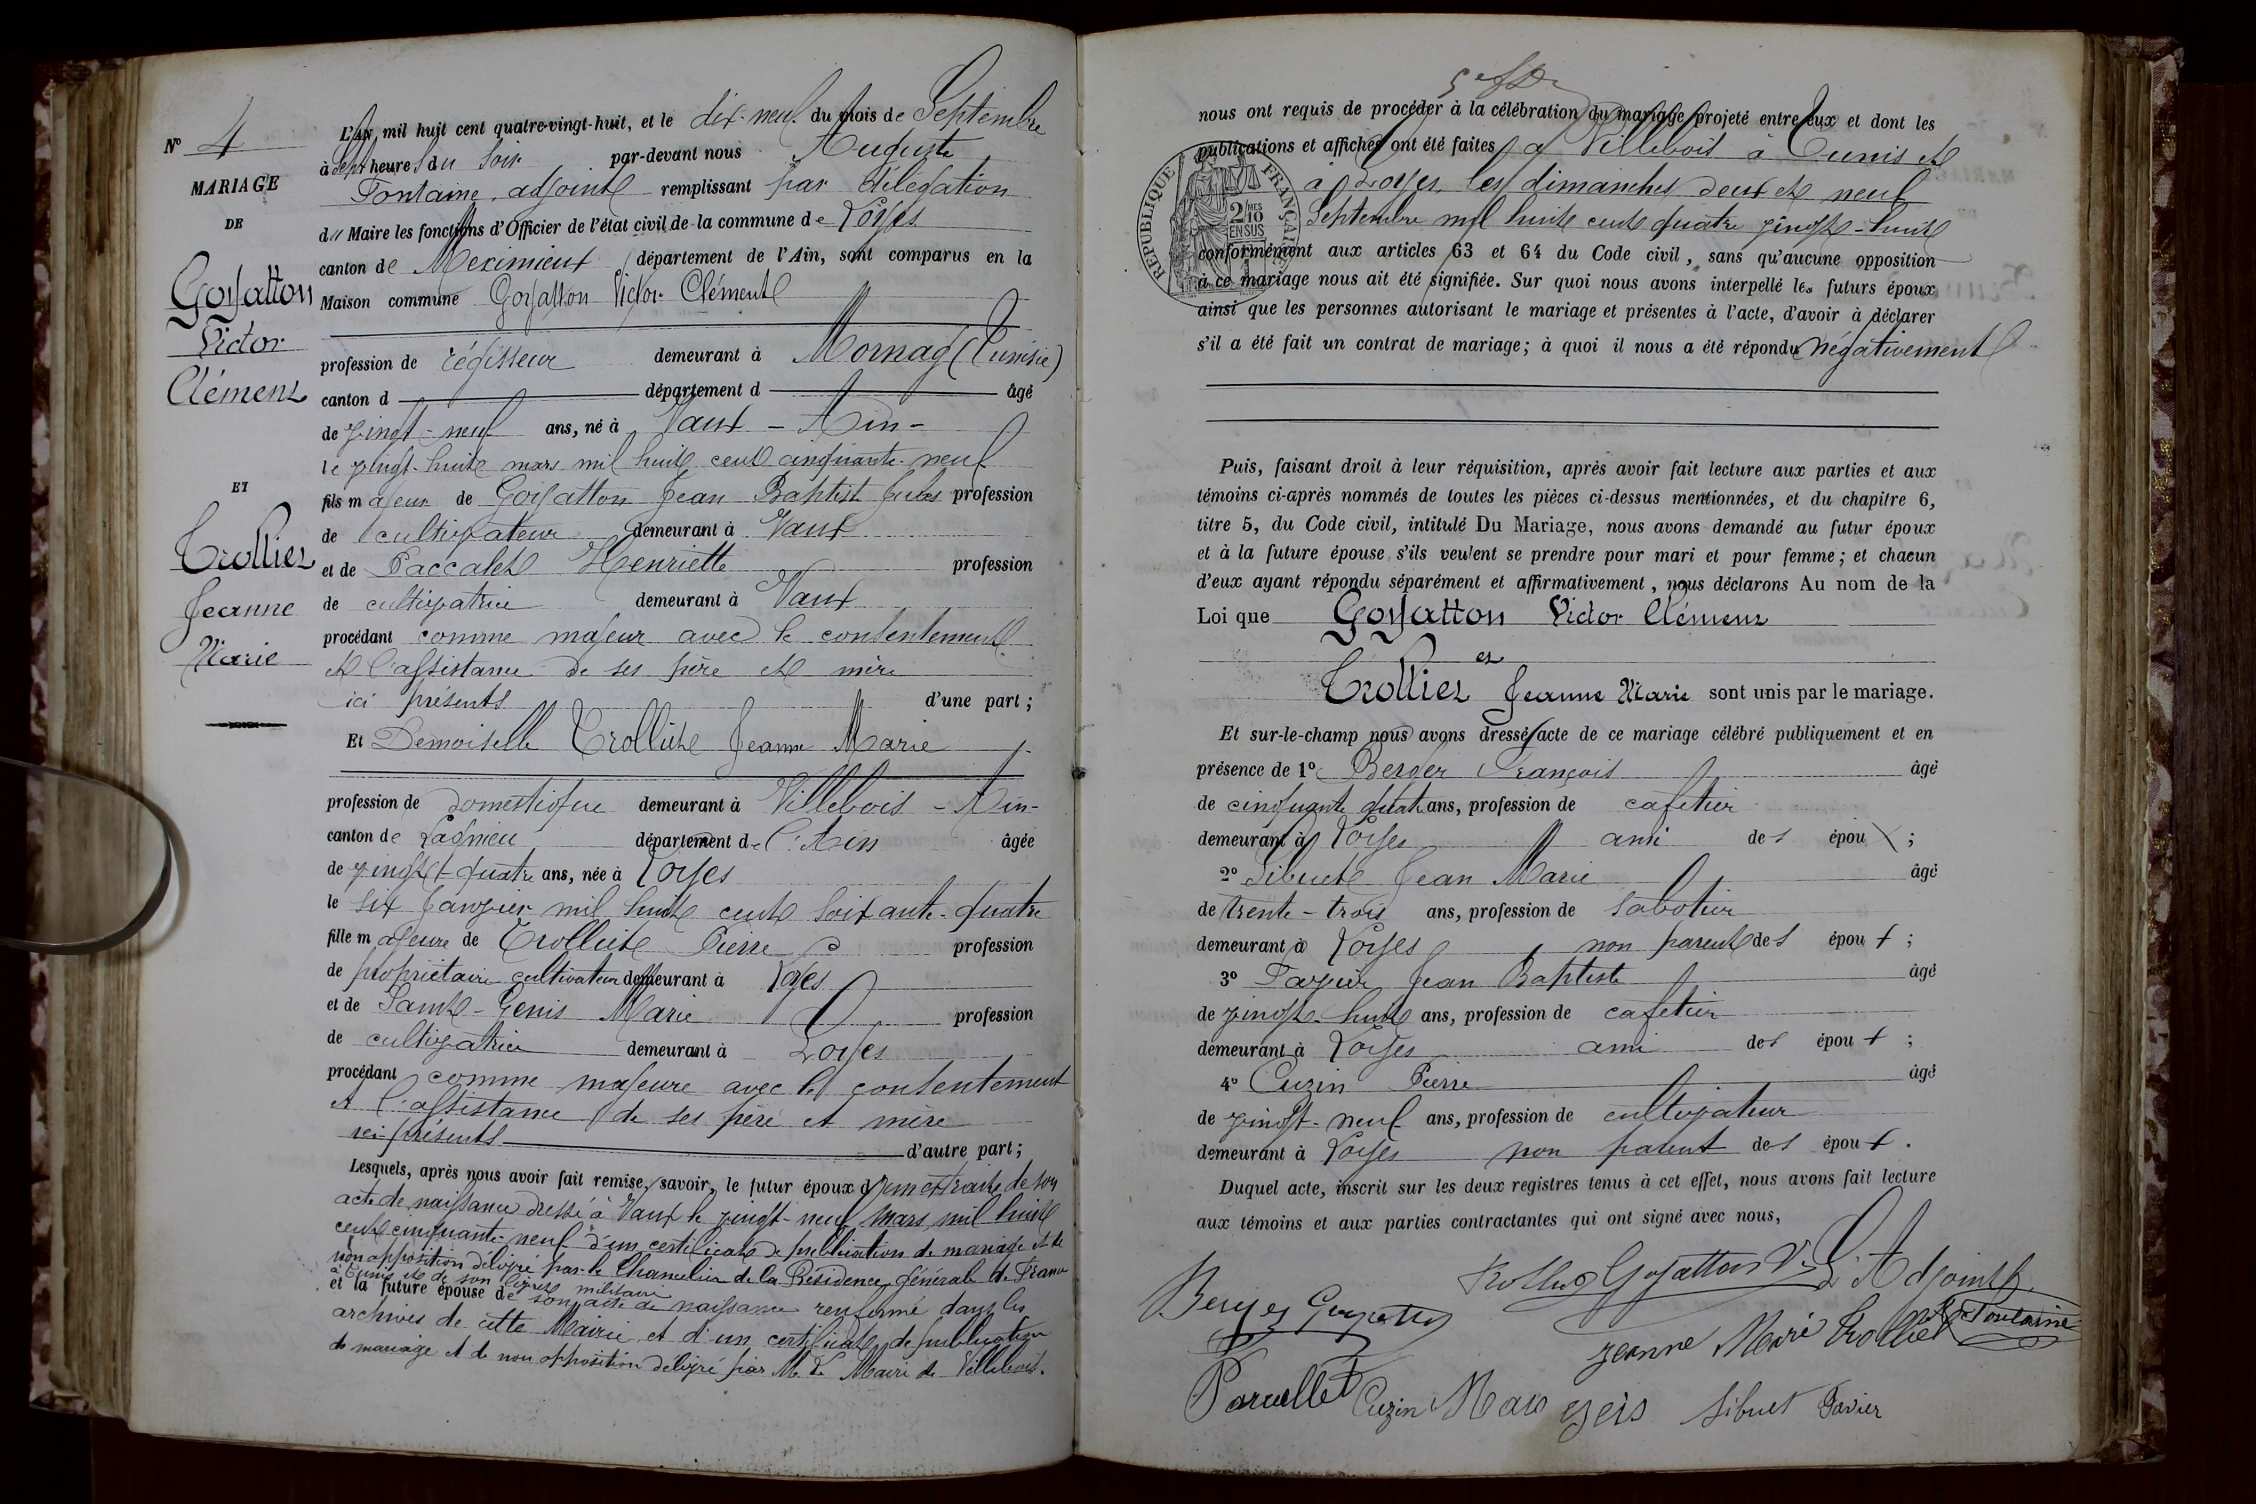 N° 4
MARIAGE
DE
Goyatton
Victor
Clément
ET
Trolliet
Jeanne
Marie
L'An mil huit cent quatre-vingt-huit, et le dix-neuf du mois de Septembre
à Sept heures du soir par-devant nous Auguste
Fontaine, adjoint remplissant par délégation
du Maire les fonctions d'Officier de l'état civil de la commune de Loyes
canton de Meximieux département de l'Ain, sont comparus en la
Maison commune Goyatton Victor Clément
profession de régisseur demeurant à Mornag (Tunisie)
canton d département d âgé
de vingt-neuf ans, né à Vaux - Ain -
le vingt-huit mars mil huit cent cinquante-neuf
fils majeur de Goyatton Jean Baptist Jules profession
de cultivateur demeurant à Vaux
et de Paccalet Henriette profession
de cultivatrice demeurant à Vaux
procédant comme majeur avec le consentement
et l'assistance de ses père et mère
ici présents d'une part ;
Et Demoiselle Trolliet Jeanne Marie
profession de domestique demeurant à Villebois - Ain -
canton de Lagnieu département de l'Ain âgée
de vingt-quatre ans, née à Loyes
le six janvier mil huit cent soixante-quatre
fille majeure de Trolliet Pierre profession
de propriétaire cultivateur demeurant à Loyes
et de Saint-Genis Marie profession
de cultivatrice demeurant à Loyes
procédant comme majeure avec le consentement
et l'assistance de ses père et mère
ici présents d'autre part ;
Lesquels, après nous avoir fait remise, savoir, le futur époux d'un extrait de son
acte de naissance dressé à Vaux le vingt-neuf mars mil huit
cent cinquante-neuf d'un certificat de publication de mariage et de
non opposition délivré par le Chancelier de la Résidence générale de France
à Tunis et de son livret militaire
et la future épouse de son acte de naissance renfermé dans les
archives de cette Mairie et d'un certificat de publication
de mariage et de non opposition délivré par M. le Maire de Villebois.
nous ont requis de procéder à la célébration du mariage projeté entre eux et dont les
publications et affiches ont été faites à Villebois à Tunis et
à Loyes les dimanches deux et neuf
Septembre mil huit cent quatre vingt-huit
conformément aux articles 63 et 64 du Code civil, sans qu'aucune opposition
à ce mariage nous ait été signifiée. Sur quoi nous avons interpellé les futurs époux
ainsi que les personnes autorisant le mariage et présentes à l'acte, d'avoir à déclarer
s'il a été fait un contrat de mariage ; à quoi il nous a été répondu négativement
RÉPUBLIQUE FRANÇAISE
2/10MES
EN SUS
Puis, faisant droit à leur réquisition, après avoir fait lecture aux parties et aux
témoins ci-après nommés de toutes les pièces ci-dessus mentionnées, et du chapitre 6,
titre 5, du Code civil, intitulé Du Mariage, nous avons demandé au futur époux
et à la future épouse s'ils veulent se prendre pour mari et pour femme ; et chacun
d'eux ayant répondu séparément et affirmativement, nous déclarons Au nom de la
Loi que Goyatton Victor Clément
et
Trolliet Jeanne Marie sont unis par le mariage.
Et sur-le-champ nous avons dressé acte de ce mariage célébré publiquement et en
présence de 1° Berger François âgé
de cinquante quatre ans, profession de cafetier
demeurant à Loyes ami des époux ;
2° Sibuet Jean Marie âgé
de trente-trois ans, profession de sabotier
demeurant à Loyes non parent des époux ;
3° Favier Jean Baptiste âgé
de vingt-huit ans, profession de cafetier
demeurant à Loyes ami des époux ;
4° Cuzin Pierre âgé
de vingt-neuf ans, profession de cultivateur
demeurant à Loyes non parent des époux.
Duquel acte, inscrit sur les deux registres tenus à cet effet, nous avons fait lecture
aux témoins et aux parties contractantes qui ont signé avec nous,
Trolliet Goyatton Vr L'Adjoint
Berger Goyatton
Jeanne Marie Trolliet Fontaine
Cuzin Sibuet Favier